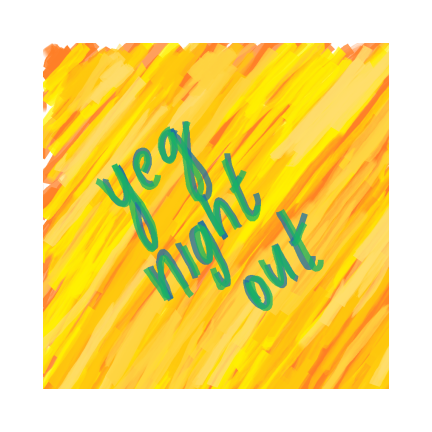 yeg
night
out